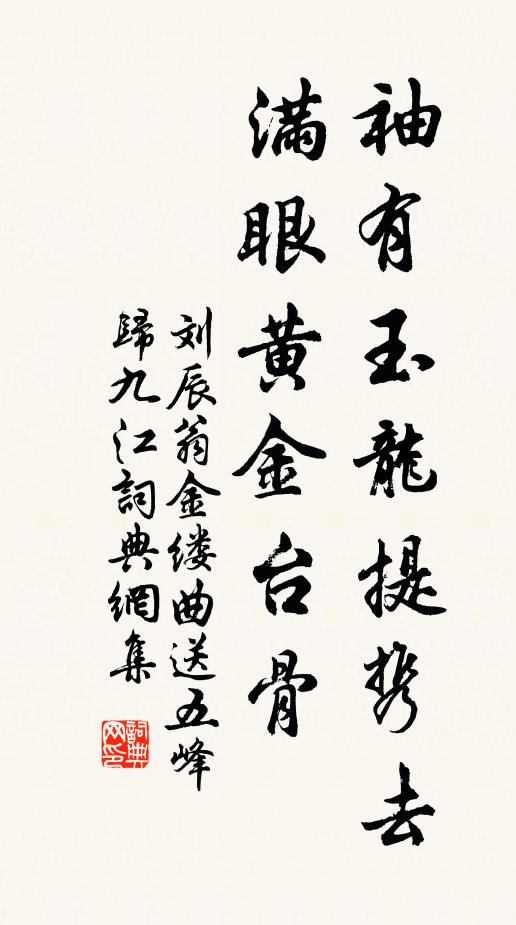 袖有玉龍提携去
滿眼黄金台骨
刘辰翁金缕曲送五峰
歸九江詞典網集
詞典
网印